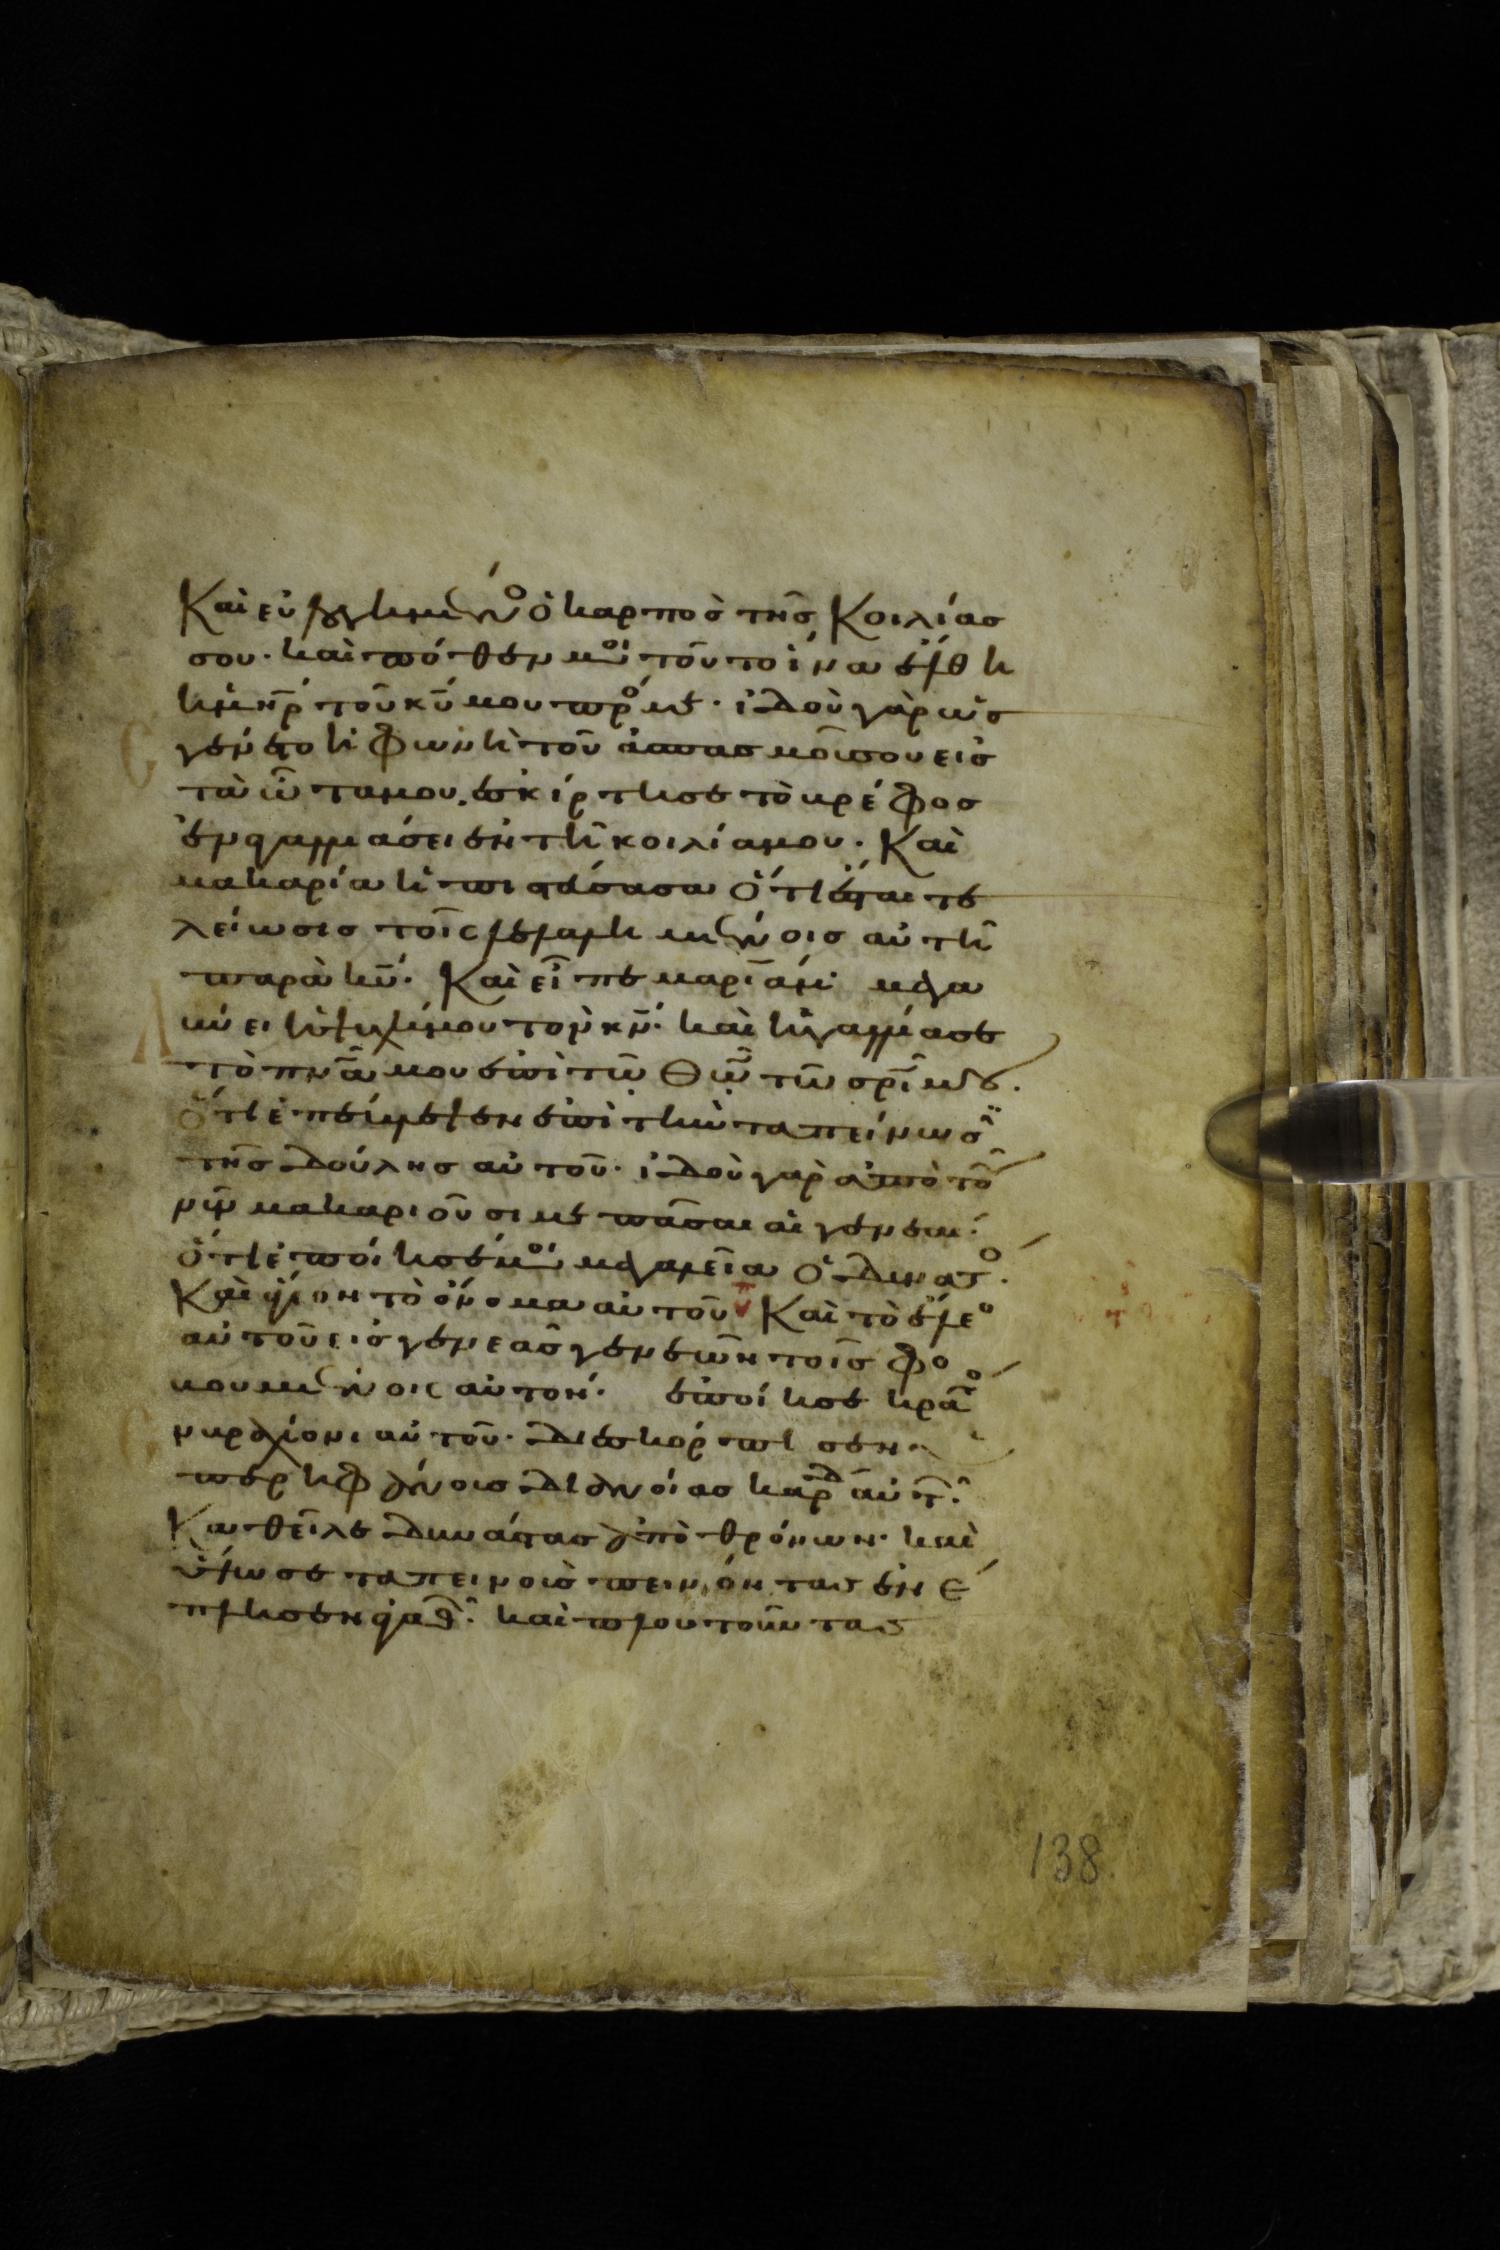 Καὶ εὐλογημένος ὁ καρπὸς τῆς Κοιλίας
σου· καὶ πόθεν μοι τοῦτο ἵνα ἔλθη
ἡ μηρ τοῦ κυ μου προς με· ἰδοὺ γὰρ ὡς
γένετο ἡ φωνὴ τοῦ ἀσπασμοῦ σου εἰς
τὰ ὦτα μου. ἐσκίρτησε τὸ βρέφος
ἐν ἀγαλλιάσει ἐν τῆ κοιλία μου· Καὶ
μακαρία ἡ πιστεύσασα ὅτι ἔσται τε
λείωσις τοῖς λελαλημένοις αὐτῆ
παρὰ κυ· Καὶ εἶπε μαριάμ· μεγα
λύνει ἡ ψυχή μου τὸν κν· καὶ ἠγαλλίασε
τὸ πνα μου ἐπὶ τῶ Θῶ τῶ σρι μου.
ὅτι ἐπέβλεψεν ἐπὶ τὴν ταπείνωσιν
τῆς δούλης αὐτοῦ· ἰδοὺ γὰρ ἀπὸ τοῦ
νῦν μακαριοῦσι με πᾶσαι αἱ γενεαί·
ὅτι ἐποίησέ μοι μεγαλεῖα ὁ δυνατος·
Καὶ ἅγιον τὸ ὄνομα αὐτοῦ Καὶ τὸ ἔλεος
αὐτοῦ εἰς γενεὰς γενεῶν τοῖς φο
βουμένοις αὐτόν· ἐποίησε κράτος
ἐν βραχίονι αὐτοῦ· διεσκόρπισεν ὑ
περηφάνους διανοίας καρδ αὐτ·
Καθεῖλε δυνάστας ἀπὸ θρόνων· καὶ
ὕψωσε ταπεινούς πεινῶντας ἐν έ
πλησεν ἀγαθ· καὶ πλουτοῦντας